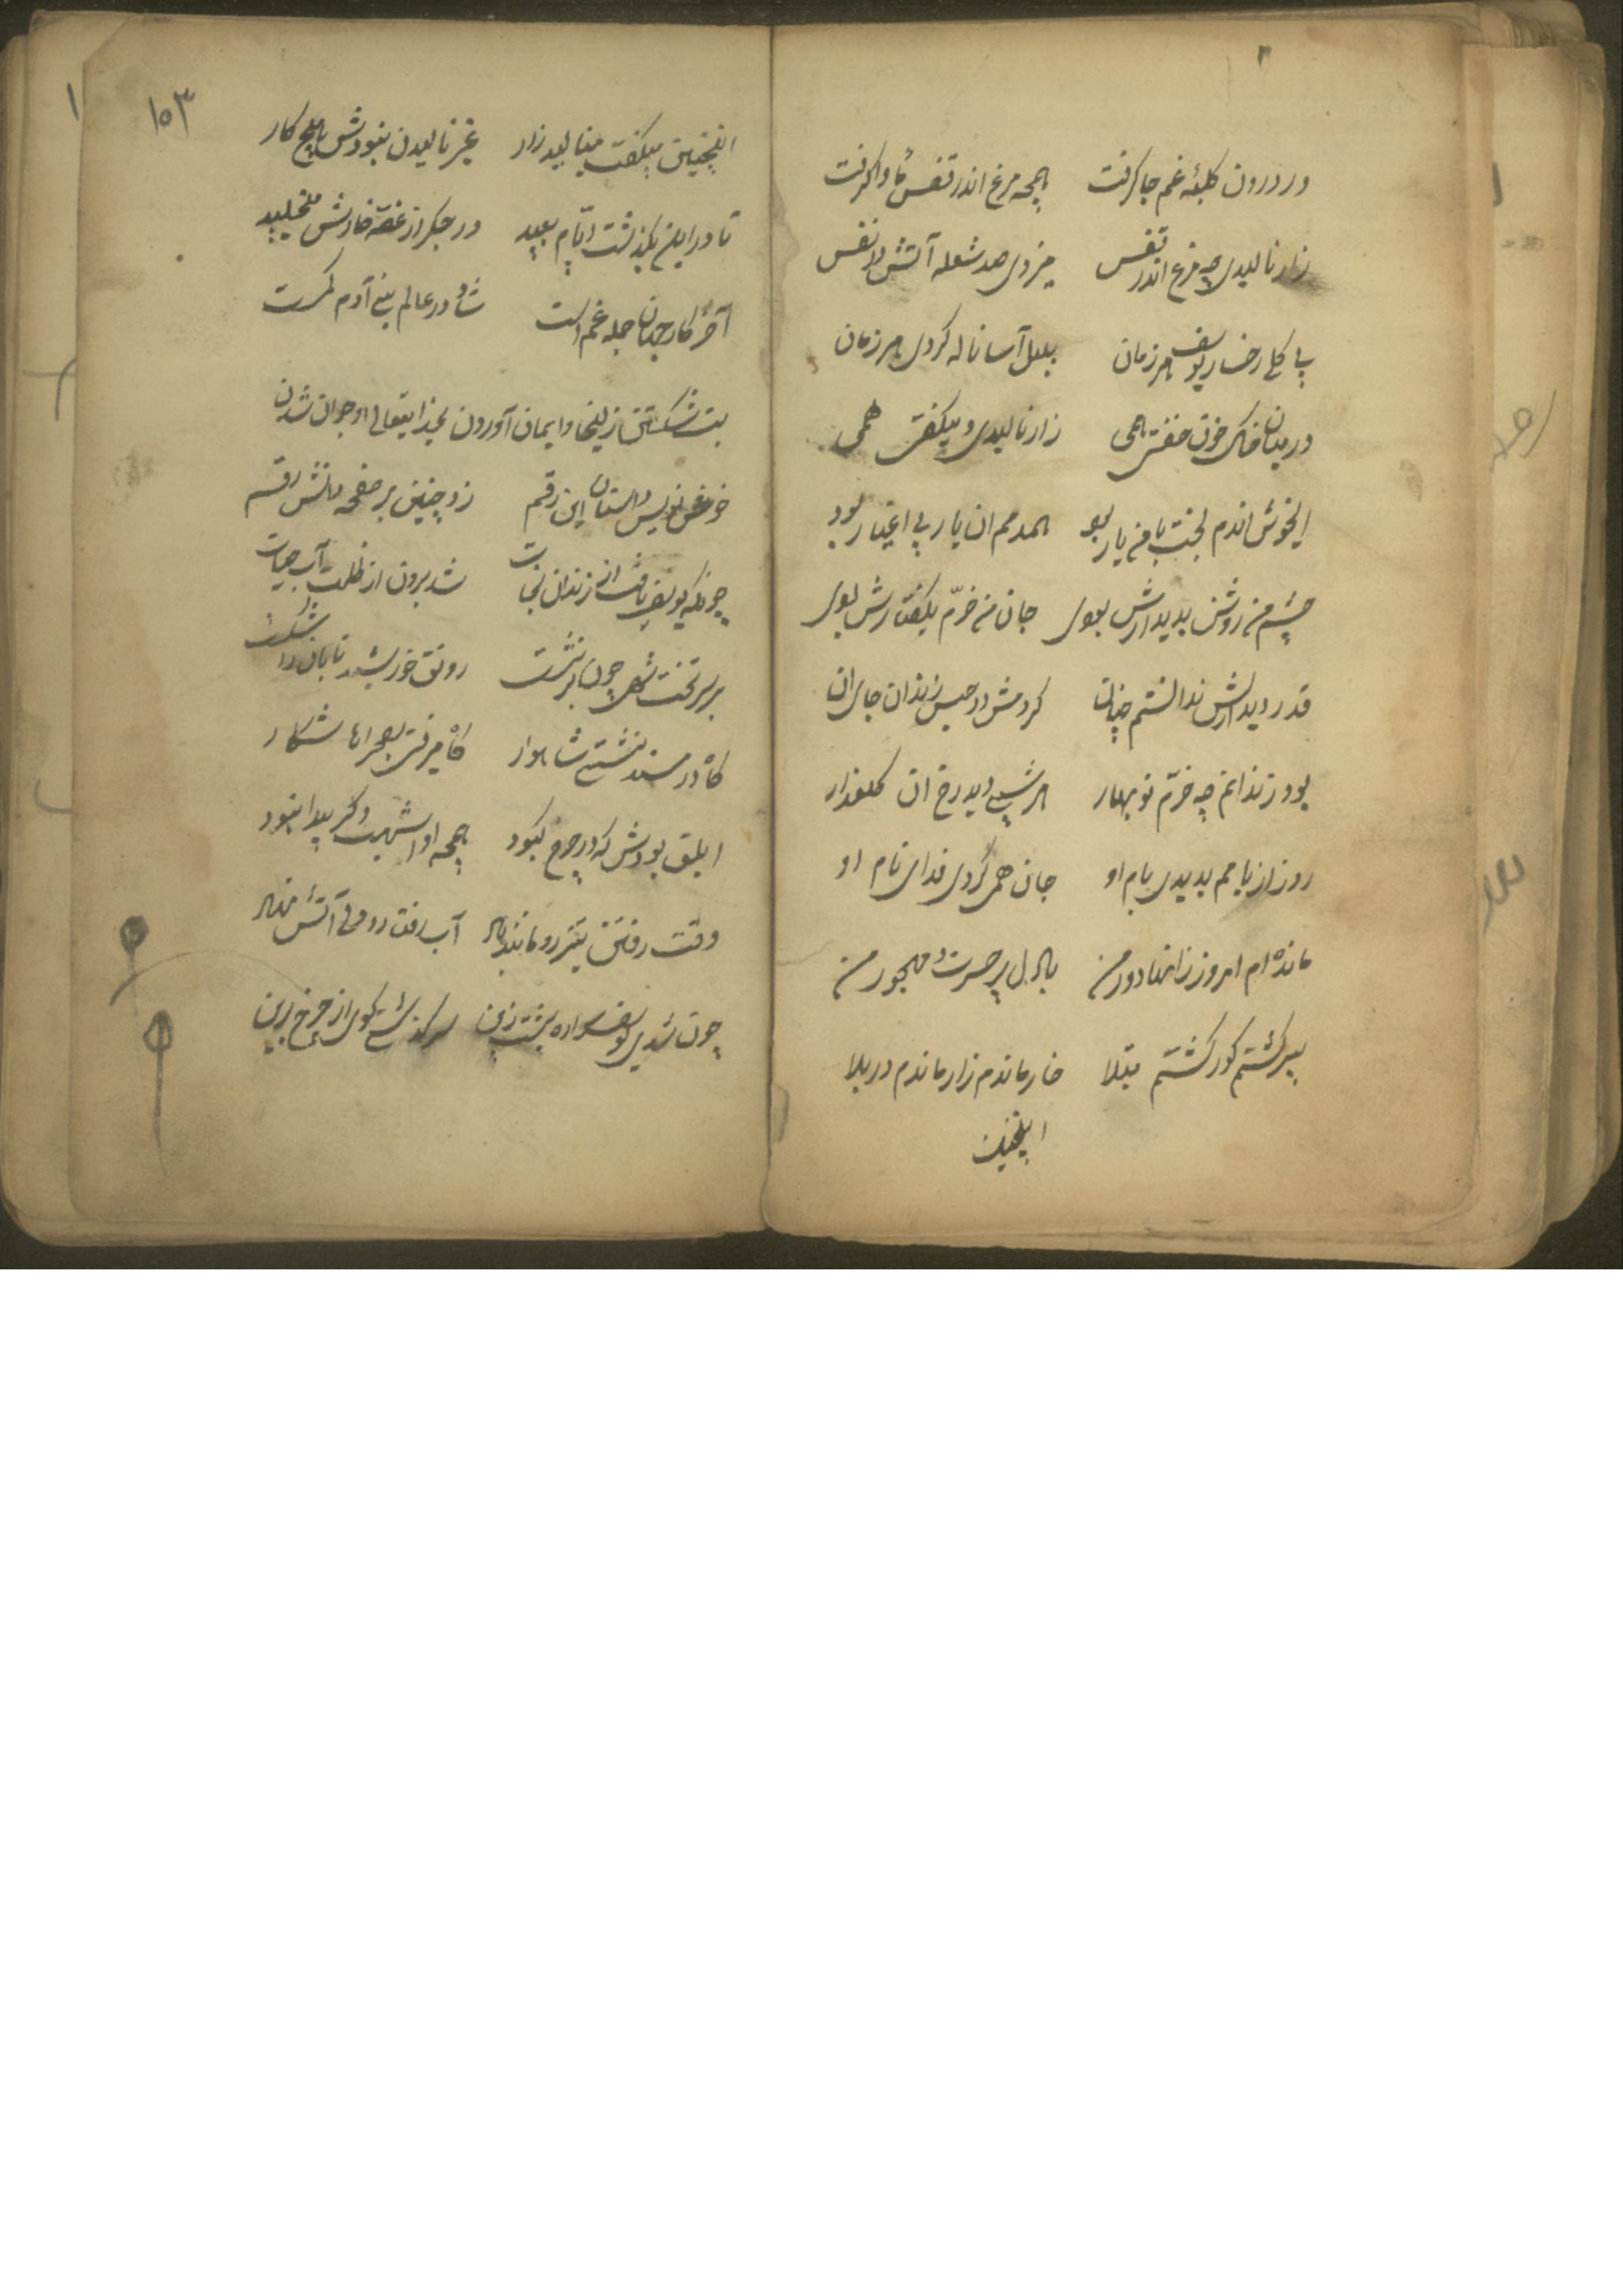 در درون کلبهٔ غم جا گرفت همچه مرغ اندر قفس ماوا گرفت
زار نالیدی چه مرغ اندر قفس میزدی صد شعله آتش در نفس
بی کل رخسار یوسف هر زمان بلبل آسا ناله کردی هر زمان
در میان خاک خون خفتی همی زار نالیدی و میکفتی همی
ایخوش اندم بخت با من یار بود همدمم ان یار بی اغیار بود
چشم من روشن بدیدارش بودی جان من خرّم بکفتارش بودی
قدر دیدارش ندانستم چنان کردمش در حبس زندان جای ان
بود زندانم چه خرّم نوبهار هر شبی دیدم رخ ان کلعذار
روز از بامم بدیدی بام او جان همی کردی فدای نام او
مانده ام امروز زانها دور من با دل پر حسرت و مهجور من
پیر کشتم کور کشتم مبتلا خار ماندم زار ماندم در بلا
اینچنین
۱۵۳
اینچنین میکفت مینالید زار غیر نالیدن نبودش هیچ کار
تا در این بکذشت ایّام بعید در جکر از غصه خارش میخلید
آخر کار جهان جمله غم است شادی در عالم بنی آدم کمست
بت شکستن زلیخا و ایمان آوردن بخدایتعالی و جوان شدن
خوش نویس داستان این رقم زد چنین بر صفحه دانش رقم
چونکه یوسف یافت از زندان نجات شد برون از ظلمت آب حیات
بر سر تخت شهی چون بر نشست رونق خورشید تابان را شکست
کاه در مسند نشستی شاهوار کاه میرفتی بصحراها شکار
ابلقی بودش که در چرخ کبود همچه او اشهب دکر پیدا نبود
وقت رفتن تیز رو مانند آب رفت رو
چون شدی یوسف سواره پشت زین سرکذشتی کوی از چرخ برین